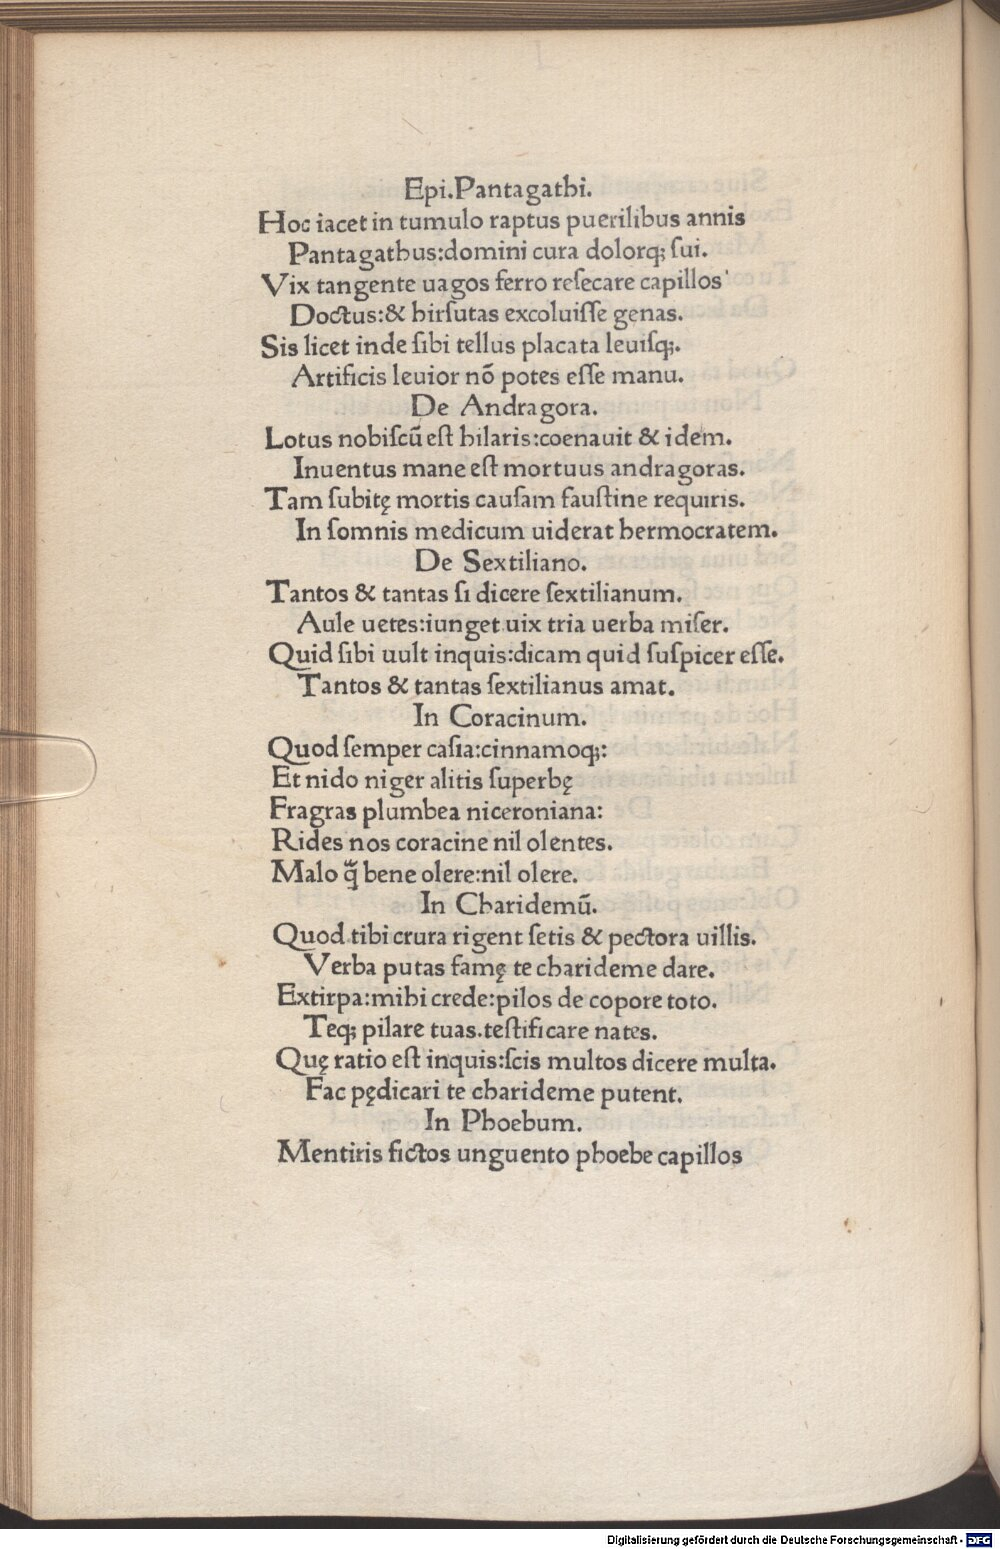 Epi.Pantagathi.
Hoc iacet in tumulo raptus puerilibus annis
Pantagathus:domini cura dolorq; sui.
Vix tangente uagos ferro reſecare capillos
Doctus:& hirſutas excoluiſſe genas.
Sis licet inde ſibi tellus placata leuiſq;.
Artificis leuior nō potes eſſe manu.
De Andragora.
Lotus nobiſcū eſt hilaris:coenauit & idem.
Inuentus mane eſt mortuus andragoras.
Tam ſubitę mortis cauſam fauſtine requiris.
In ſomnis medicum uiderat hermocratem.
De Sextiliano.
Tantos & tantas ſi dicere ſextilianum.
Aule uetes:iunget uix tria uerba miſer.
Quid ſibi uult inquis:dicam quid ſuſpicer eſſe.
Tantos & tantas ſextilianus amat.
In Coracinum.
Quod ſemper caſia:cinnamoq;:
Et nido niger alitis ſuperbę
Fragras plumbea niceroniana:
Rides nos coracine nil olentes.
Malo q̃ bene olere:nil olere.
In Charidemū.
Quod tibi crura rigent ſetis & pectora uillis.
Verba putas famę te charideme dare.
Extirpa:mihi crede:pilos de copore toto.
Teq; pilare tuas.teſtificare nates.
Quę ratio eſt inquis:ſcis multos dicere multa.
Fac pędicari te charideme putent.
In Phoebum.
Mentiris fictos unguento phoebe capillos
Digitalisierung gefördert durch die Deutsche Forschungsgemeinschaft - DFG